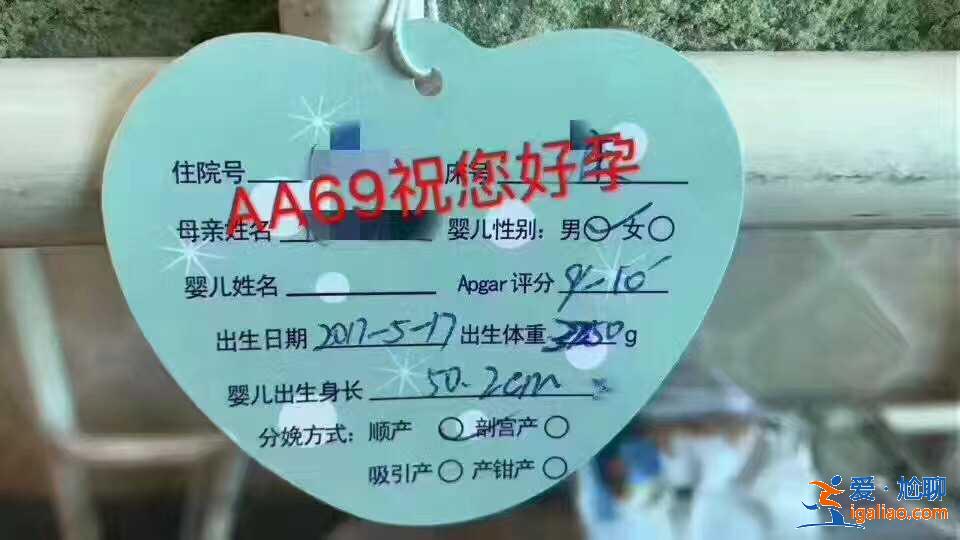 住院号 床号
AA69祝您好孕
母亲姓名 婴儿性别：男○ 女○
婴儿姓名 Apgar评分 9-10
出生日期 2017-5-17 出生体重 g
婴儿出生身长 50.2cm
分娩方式：顺产 ○ 剖宫产○
吸引产○ 产钳产○
爱·尬聊
igaliao.com